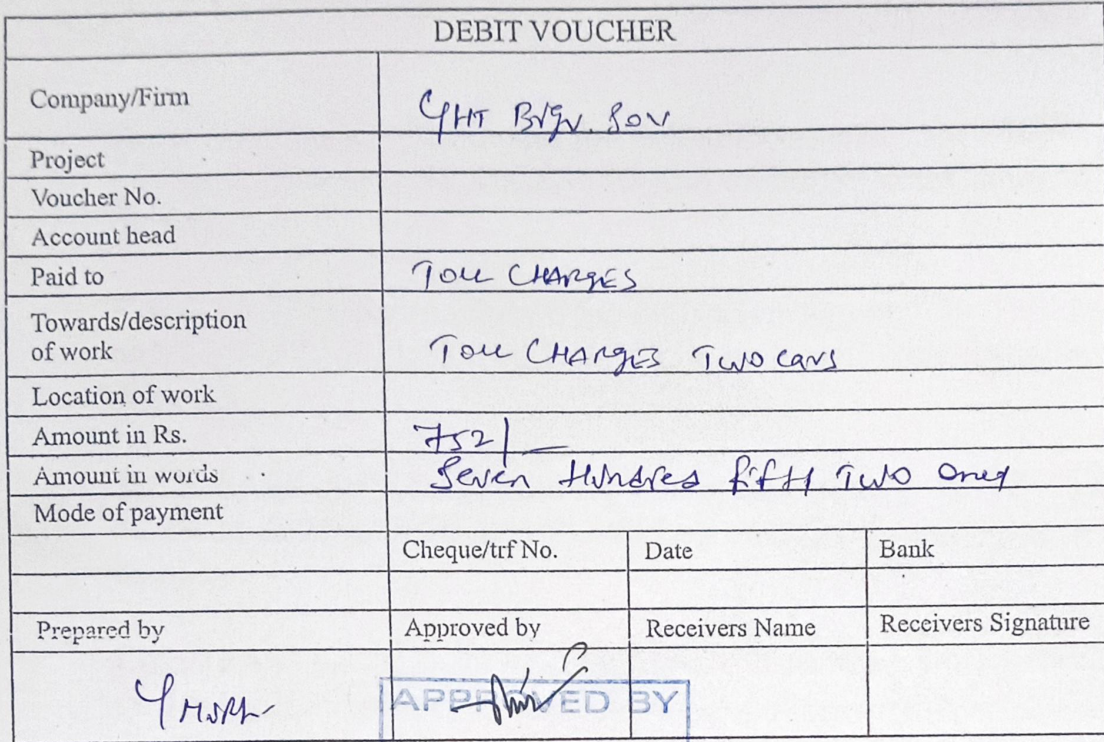 DEBIT VOUCHER
Company/Firm
Project
Voucher No.
Account head
Paid to Toll CHARGES
Towards/description
of work Toll CHARGES Two cars
Location of work
Amount in Rs. 752/-
Amount in words Seven Hundred fifty Two Only
Mode of payment
Cheque/trf No. Date Bank
Prepared by Approved by Receivers Name Receivers Signature
APPROVED BY